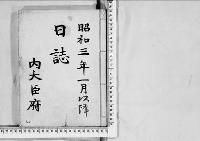 昭和三年一月以降
日誌
内大臣府